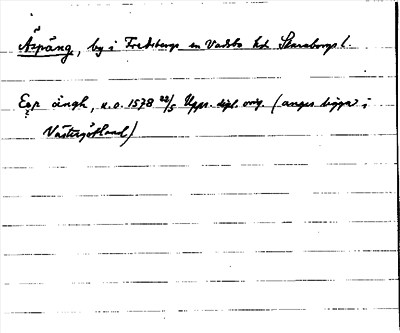 Äspäng, by i Fredsbergs sn Vadsbo hd. Skaraborgs l.
Esp ängh, u.o. 1578 22/5 Upps. dipl. orig. (anges ligga i
Västergötland)